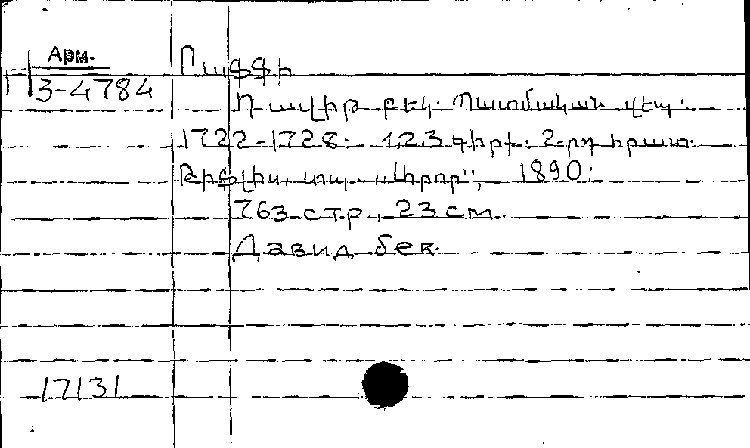 Арм.
П3-4784
Րաֆֆի
Դավիթ բեկ: Պատմական վեպ:
1722-1728: 1,2,3 գիրք. 2-րդ հրատ.
Թիֆլիս, տպ. „Արոր“, 1890:
763 стр., 23 см.
Давид бек.
17131